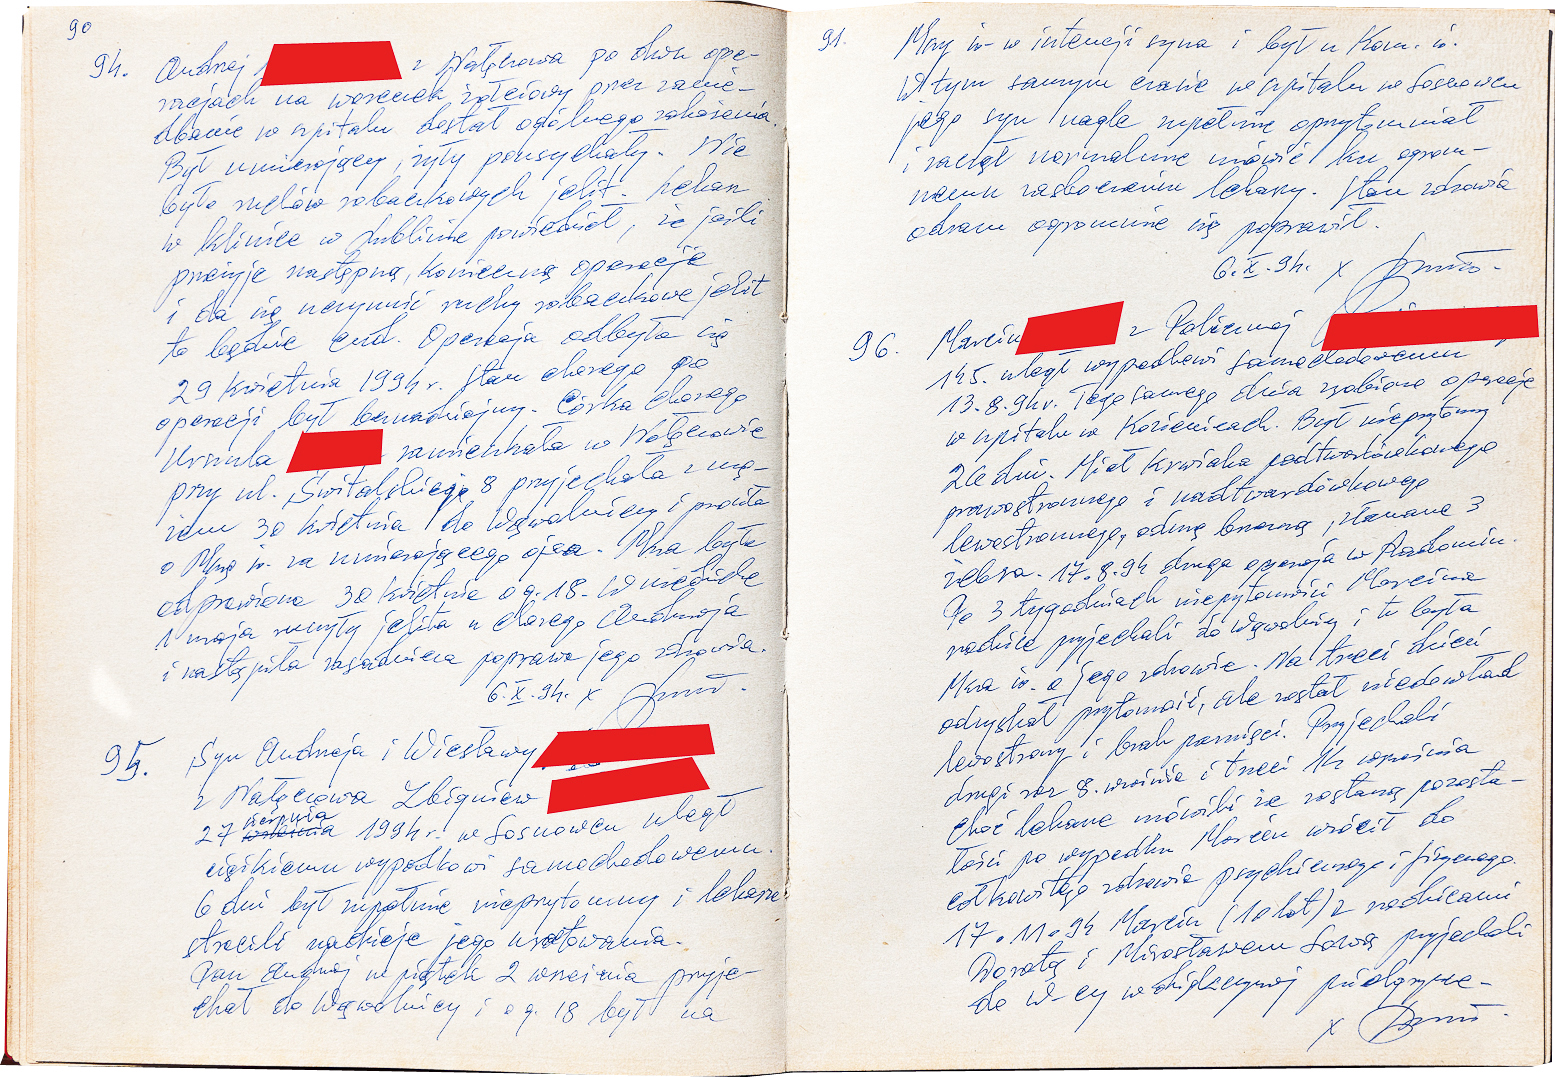 90
94. Andrzej z Nałęczowa po dwu ope-
racjach na woreczek żółciowy przez zanie-
dbanie w szpitalu dostał ogólnego zakażenia.
Był umierający i żyły pousychały. Nie
było ruchów robaczkowych jelit. Lekarz
w klinice w Lublinie powiedział, że jeśli
przeżyje następną, konieczną operację
i da się uczynnić ruchy robaczkowe jelit
to będzie cud. Operacja odbyła się
29 kwietnia 1994 r. Stan chorego po
operacji był beznadziejny. Córka chorego
Urszula zamieszkała w Nałęczowie
przy ul. Świtalskiego 8 przyjechała z mę-
żem 30 kwietnia do Wąwolnicy i prosiła
o Mszę św. za umierającego ojca. Msza była
odprawiona 30 kwietnia o g. 18. W niedzielę
1 maja ruszyły jelita u chorego Andrzeja
i nastąpiła zasadnicza poprawa jego zdrowia.
6.X.94. x
95. Syn Andrzeja i Wiesławy
z Nałęczowa Zbigniew
sierpnia
27 września 1994 r. w Sosnowcu uległ
ciężkiemu wypadkowi samochodowemu.
6 dni był zupełnie nieprzytomny i lekarze
stracili nadzieję jego uratowania.
Pan Andrzej w piątek 2 września przyje-
chał do Wąwolnicy i o g. 18 był na
91.
Mszy św. w intencji syna i był u Kom. św.
W tym samym czasie w szpitalu w Sosnowcu
jego syn nagle zupełnie oprzytomniał
i zaczął normalnie mówić ku ogrom-
nemu zaskoczeniu lekarzy. Stan zdrowia
odrazu ogromnie się poprawił.
6.X.94. x
96. Marcin z Policznej
145. uległ wypadkowi samochodowemu
13.8.94 r. Tego samego dnia zrobiono operację
w szpitalu w Kozienicach. Był nieprzytomny
26 dni. Miał krwiaka podtwardówkowego
prawostronnego i nadtwardówkowego
lewostronnego, odmę boczną, złamane 3
żebra. 17.8.94 druga operacja w Radomiu.
Po 3 tygodniach nieprzytomności Marcina
rodzice przyjechali do Wąwolnicy i tu była
Msza św. o jego zdrowie. Na trzeci dzień
odzyskał przytomność, ale został niedowład
lewostrony i brak pamięci. Przyjechali
drugi raz 8. września i trzeci 14 września
choć lekarze mówili że zostaną pozosta-
łości po wypadku Marcin wrócił do
całkowitego zdrowia psychicznego i fizycznego.
17.11.94 Marcin (10 lat) z rodzicami
Dorotą i Mirosławem Sową przyjechali
do W-cy w dziękczynnej pielgrzymce-
x